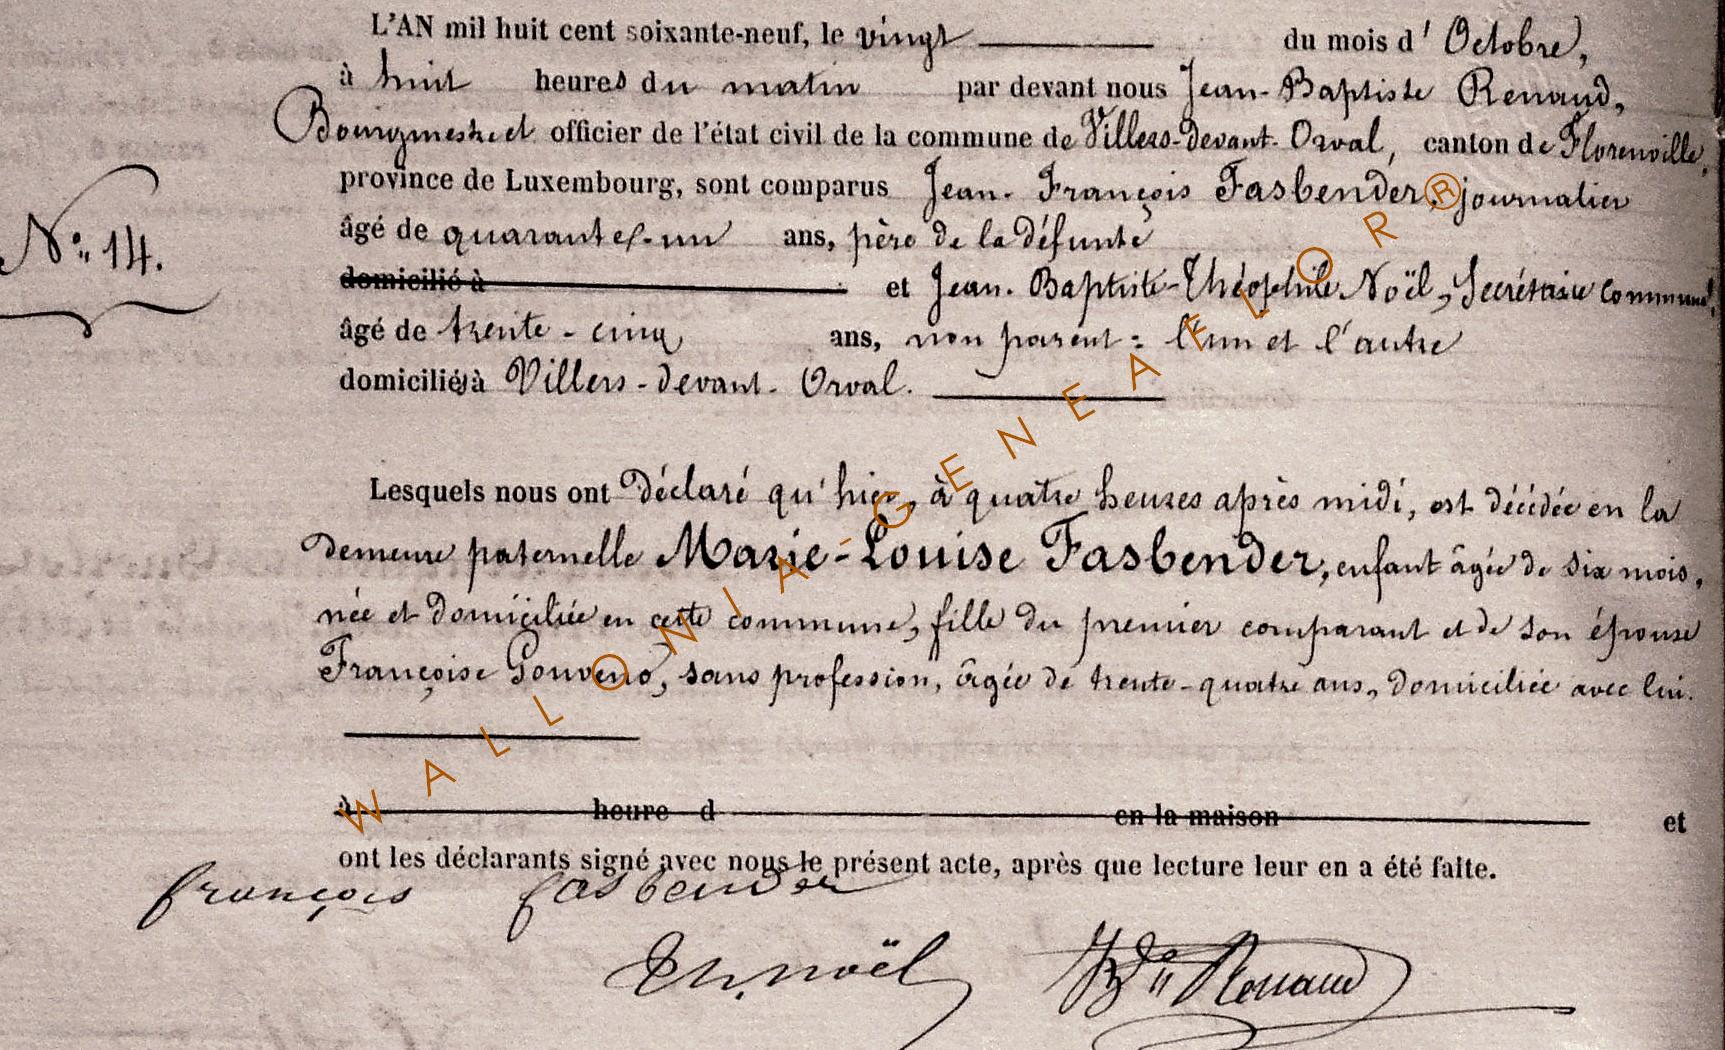 L'AN mil huit cent soixante-neuf, le vingt du mois d' Octobre,
à huit heures du matin par devant nous Jean-Baptiste Renaud,
Bourgmestre et officier de l'état civil de la commune de Villers-devant-Orval, canton de Florenville,
province de Luxembourg, sont comparus Jean-François Fasbender, journalier
N° 14.
âgé de quarante-un ans, père de la défunte
domicilié à et Jean-Baptiste-Théophile Noël, Secrétaire communal,
âgé de trente-cinq ans, non parent : l'un et l'autre
domiciliés à Villers-devant-Orval.
Lesquels nous ont déclaré qu'hier, à quatre heures après midi, est décédée en la
demeure paternelle Marie-Louise Fasbender, enfant âgée de six mois,
née et domiciliée en cette commune, fille du premier comparant et de son épouse
Françoise Gouveno, sans profession, âgée de trente-quatre ans, domiciliée avec lui.
à heure d en la maison et
ont les déclarants signé avec nous le présent acte, après que lecture leur en a été faite.
françois fasbender
Th. noël JBte Renaud
WALLONIA-GENEAFLOR®